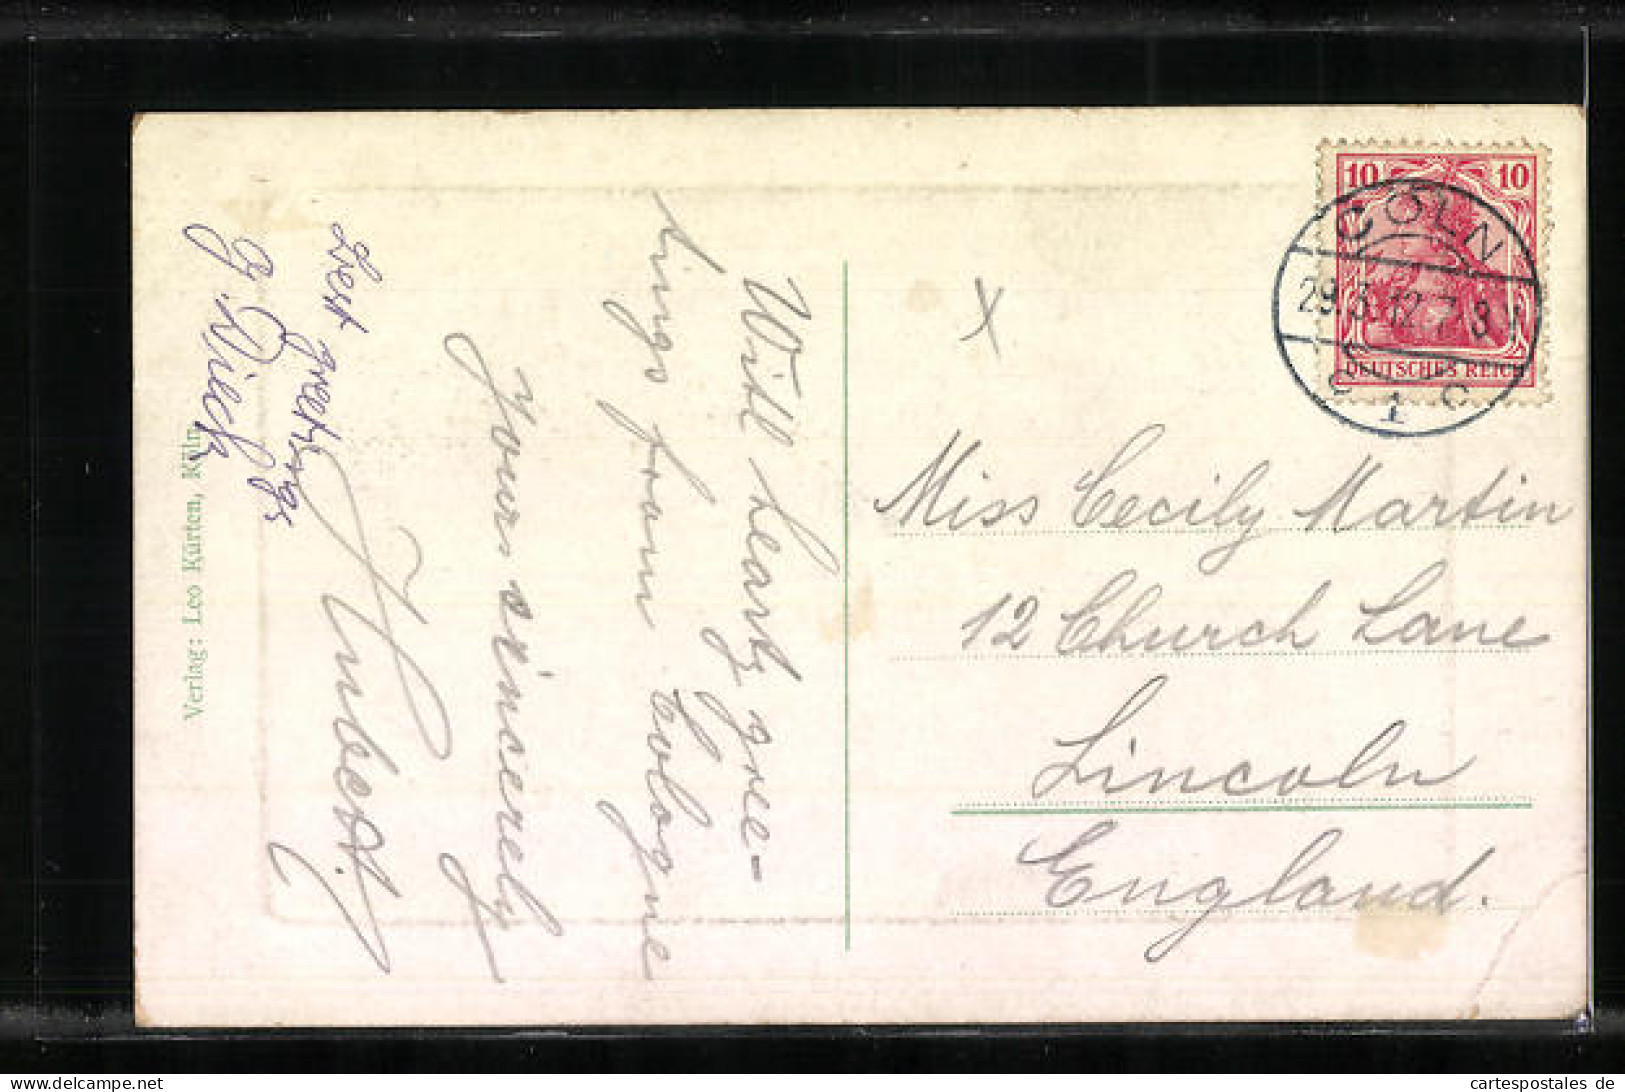 With hearty gree=
tings from Cologne
Yours sincerely
Best greetings
Verlag: Leo Kürten, Köln
10 10
DEUTSCHES REICH
CÖLN
29.5.12.7-8
1
x
Miss Cecily Martin
12 Church Lane
Lincoln
England.
delcampe.net
cartespostales de